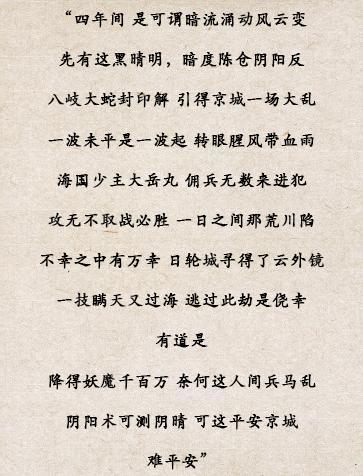 “四年间 是可谓暗流涌动风云变
先有这黑晴明，暗度陈仓阴阳反
八岐大蛇封印解 引得京城一场大乱
一波未平是一波起 转眼腥风带血雨
海国少主大岳丸 佣兵无数来进犯
攻无不取战必胜 一日之间那荒川陷
不幸之中有万幸 日轮城寻得了云外镜
一技瞒天又过海 逃过此劫是侥幸
有道是
降得妖魔千百万 奈何这人间兵马乱
阴阳术可测阴晴 可这平安京城
难平安”